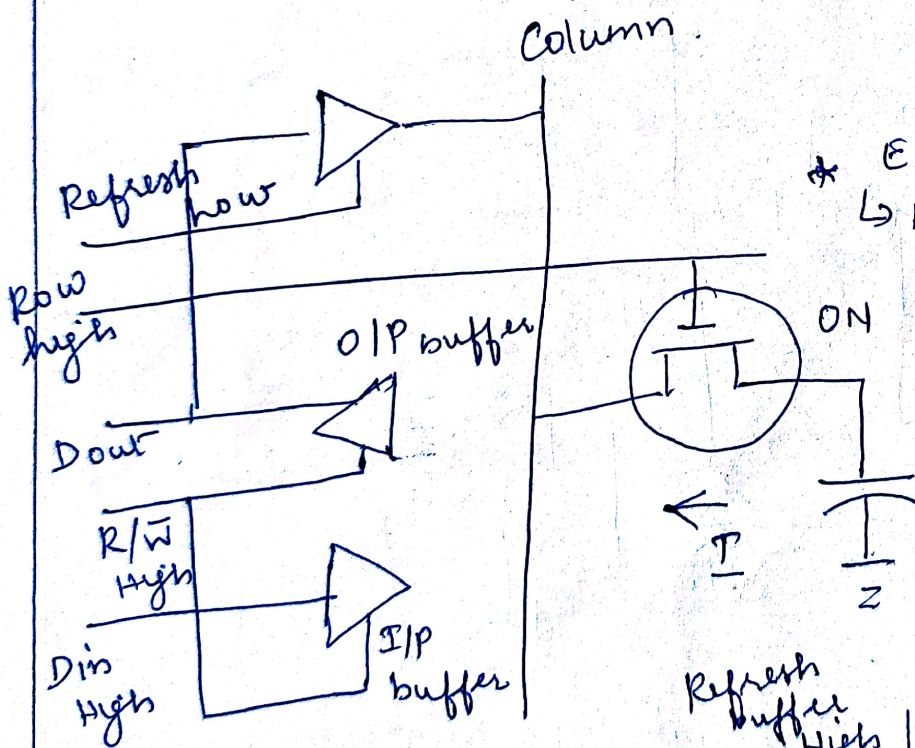 Column.
Refresh
Low
* E
↳
Row
high
O/P buffer
ON
Dout
R/W̅
High
I
Din
High
I/P
buffer
Refresh
buffer
High